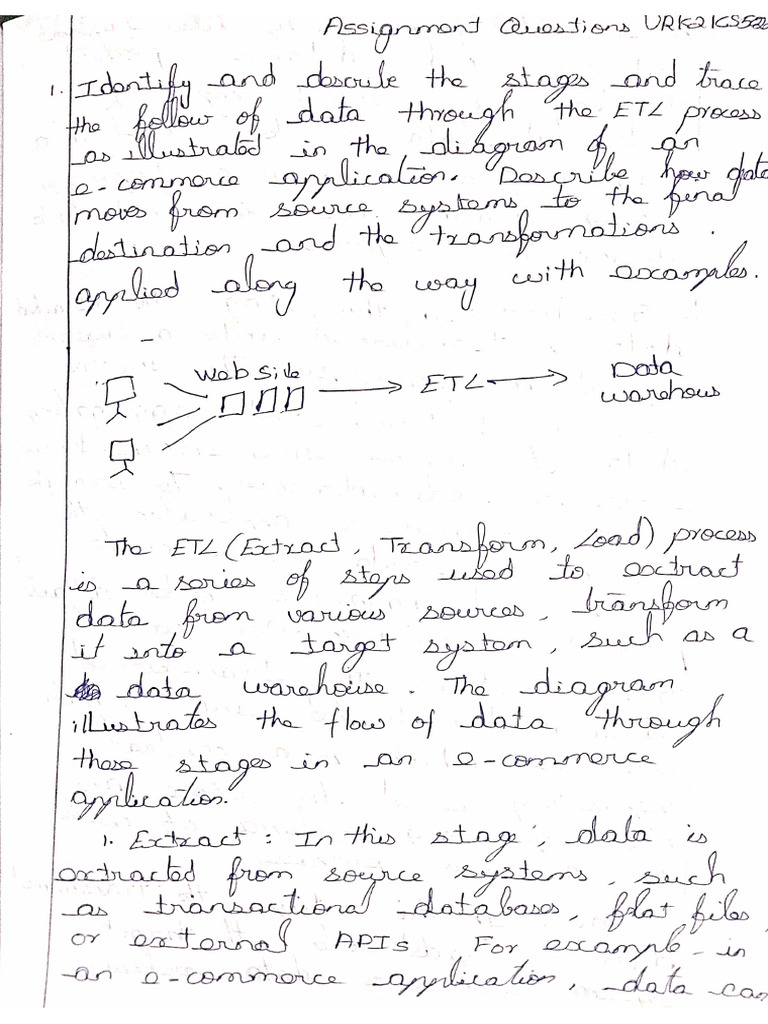 Assignment Questions URK21CS52
1. Identify and describe the stages and trace
the follow of data through the ETL process
as illustrated in the diagram of an
e-commerce application. Describe how data
moves from source systems to the final
destination and the transformations.
applied along the way with examples.
Web Site
ETL
Data
warehous
The ETL (Extract, Transform, Load) process
is a series of steps used to extract
data from various sources, transform
it into a target system, such as a
data warehouse. The diagram
illustrates the flow of data through
these stages in an e-commerce
application.
1. Extract : In this stage, data is
extracted from source systems, such
as transactional databases, flat files,
or external APIs. For example - in
an e-commerce application, data can